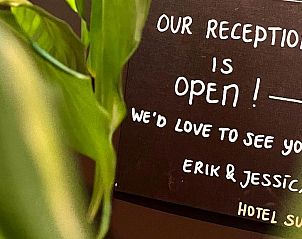 OUR RECEPTION
IS
OPEN! —
WE'D LOVE TO SEE YO
ERIK & JESSICA
HOTEL SU